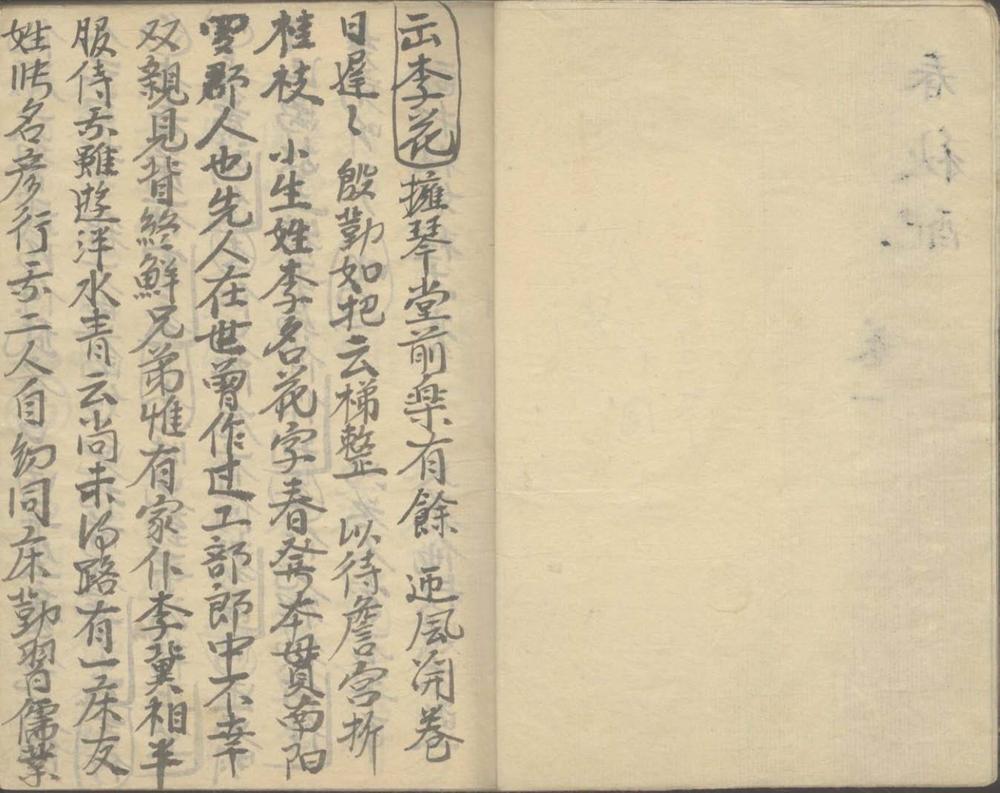 春秋配 卷一
出李花 擁琴堂前樂有餘 迎风開卷
日遲〻 殷勤如把云梯整 以待詹宫折
桂枝 小生姓李名花字春發本貫南阳
郡人也先人在世曾作过工部郎中不幸
双親見背終鮮兄弟惟有家仆李冀相半
服侍雖遊泮水青云尚未得路有一床友
姓张名彦行二人自幼同床勤習儒業